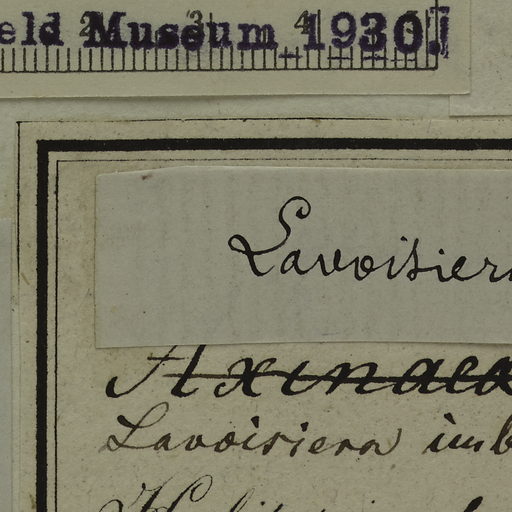 eld Museum 1930.
2 3 4 5
Lavoisiera
Axinaea
Lavoisiera imb
Habitat in